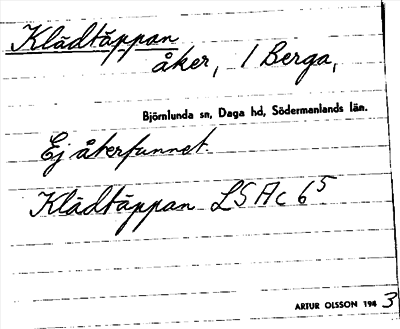 Klädtäppan
åker, 1 Berga,
Björnlunda sn, Daga hd, Södermanlands län.
Ej återfunnet
Klädtäppan LSAc 65
ARTUR OLSSON 194 3